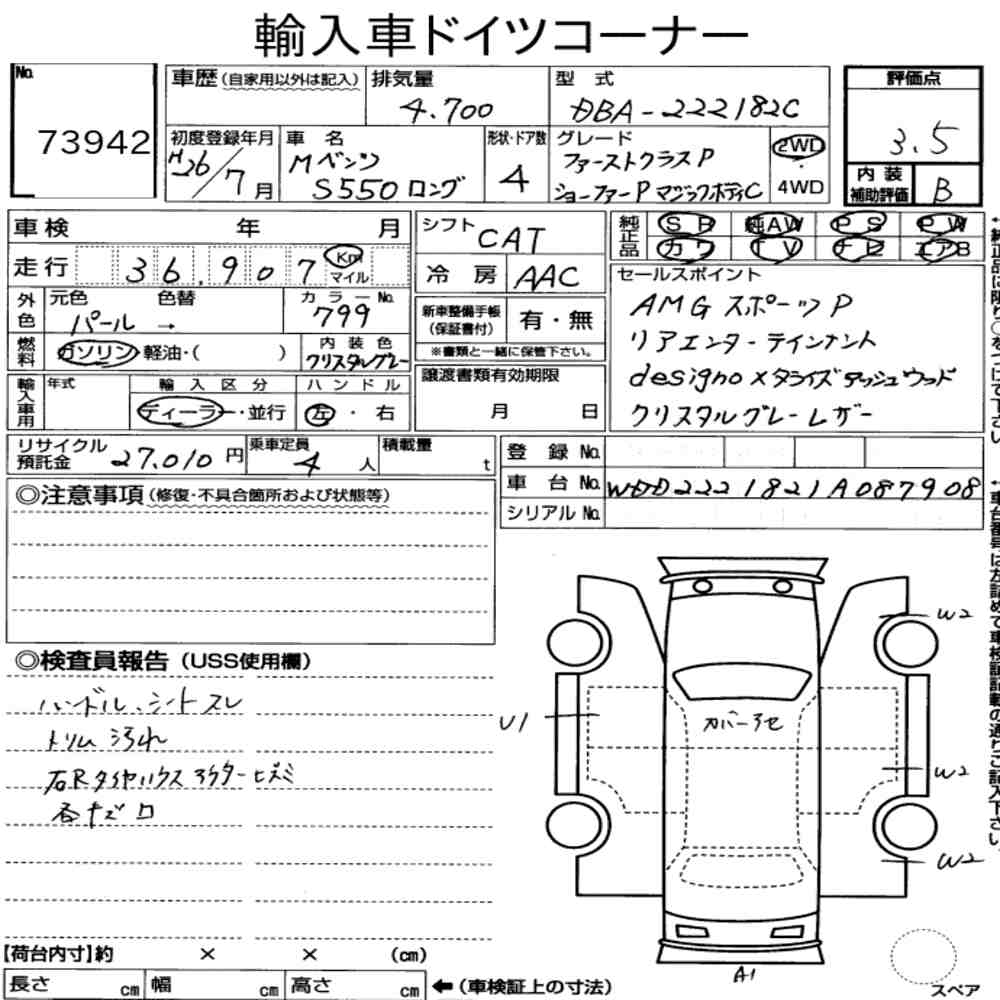 輸入車ドイツコーナー
No.
73942
車歴(自家用以外は記入)
排気量
4.700
型式
DBA-222182C
評価点
3.5
内装
補助評価
B
初度登録年月
H26/7月
車名
Mベンツ
S550ロング
形状・ドア数
4
グレード
ファーストクラスP
ショーファーP マジックボディC
2WD
・
4WD
車検 年 月
走行 36,907 Km マイル
シフト CAT
冷房 AAC
純正品
SR 純AW PS PW
カワ TV ナビ エアB
外色
元色 色替
パール →
カラーNo.
799
燃料
ガソリン・軽油・( )
内装色
クリスタルグレー
新車整備手帳
(保証書付)
有・無
※書類と一緒に保管下さい。
セールスポイント
AMGスポーツP
リアエンターテインメント
designoメタライズアッシュウッド
クリスタルグレーレザー
輸入車用
年式
輸入区分
ディーラー・並行
ハンドル
左・右
譲渡書類有効期限
月 日
リサイクル
預託金
27,010円
乗車定員
4人
積載量
t
登録No.
車台No. WDD2221821A087908
シリアルNo.
◎注意事項(修復・不具合箇所および状態等)
◎検査員報告(USS使用欄)
ハンドル、シートスレ
トリム汚れ
右Rタイヤハウスアウターヒズミ
各キズ有
U1
カバーアセ
W2
W2
W2
A1
スペア
【荷台内寸】約 × × (cm)
長さ cm 幅 cm 高さ cm
←(車検証上の寸法)